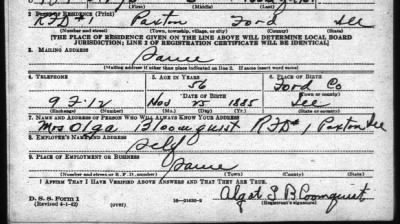 RFD #1 Paxton Ford Ill
(Number and street or R. F. D. number) (Town, township, village, or city) (County) (State)
[THE PLACE OF RESIDENCE GIVEN ON THE LINE ABOVE WILL DETERMINE LOCAL BOARD
JURISDICTION; LINE 2 OF REGISTRATION CERTIFICATE WILL BE IDENTICAL]
3. MAILING ADDRESS
Same
[Mailing address if other than place indicated on line 2. If same insert word same]
4. TELEPHONE
5. AGE IN YEARS
6. PLACE OF BIRTH
56
Ford Co
DATE OF BIRTH
(Town or county)
9 F-12
Nov 25 1885
Ill
(Exchange) (Number)
(Mo.) (Day) (Yr.)
(State or country)
7. NAME AND ADDRESS OF PERSON WHO WILL ALWAYS KNOW YOUR ADDRESS
Mrs Olga Bloomquist RFD 1 Paxton Ill
8. EMPLOYER'S NAME AND ADDRESS
Self
9. PLACE OF EMPLOYMENT OR BUSINESS
Same
(Number and street or R. F. D. number) (Town) (County) (State)
I AFFIRM THAT I HAVE VERIFIED ABOVE ANSWERS AND THAT THEY ARE TRUE.
D. S. S. Form 1
(Revised 4-1-42) (over)
Algot Bloomquist
(Registrant's signature)